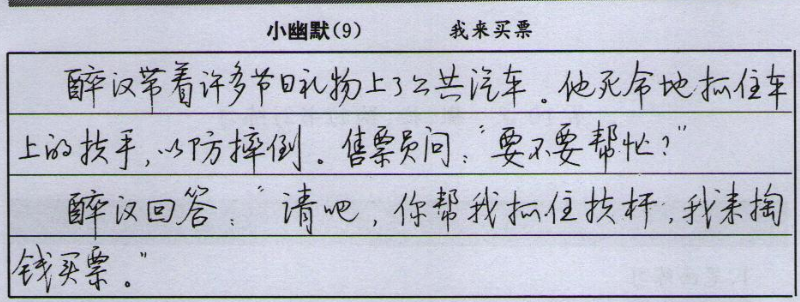 小幽默(9) 我来买票
醉汉带着许多节日礼物上了公共汽车。他死命地抓住车
上的扶手,以防摔倒。售票员问:“要不要帮忙?”
醉汉回答:“请吧,你帮我抓住扶杆,我来掏
钱买票。”